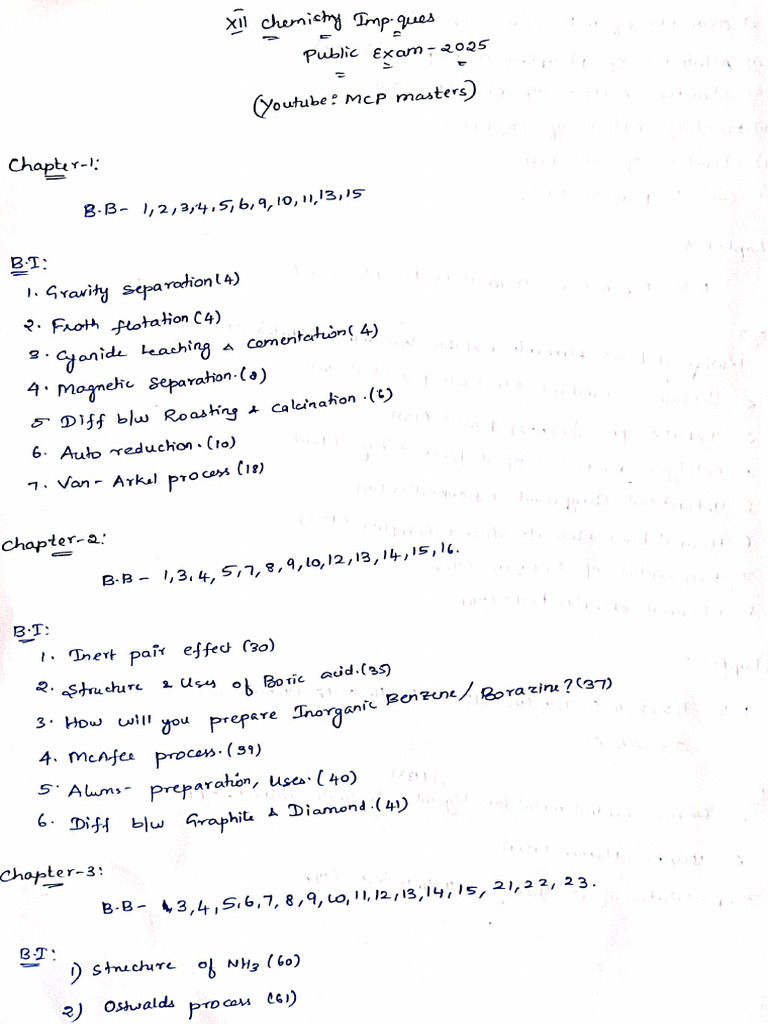 XII chemistry Imp-ques
Public Exam-2025
(Youtube: MCP masters)
Chapter-1:
B.B- 1,2,3,4,5,6,9,10,11,13,15
B.I:
1. Gravity separation(4)
2. Froth flotation(4)
3. Cyanide leaching & comentation(4)
4. Magnetic separation.(8)
5 Diff b/w Roasting & calcination.(6)
6. Auto reduction.(10)
7. Van-Arkel process(18)
Chapter-2:
B.B- 1,3,4,5,7,8,9,10,12,13,14,15,16.
B.I:
1. Inert pair effect (30)
2. Structure & Uses of Boric acid.(35)
3. How will you prepare Inorganic Benzene/Borazine?(37)
4. McAfee process.(39)
5. Alums- preparation, Uses.(40)
6. Diff b/w Graphite & Diamond.(41)
Chapter-3:
B.B- 3,4,5,6,7,8,9,10,11,12,13,14,15, 21,22,23.
B.I:
1) Structure of NH3 (60)
2) Ostwalds process (61)